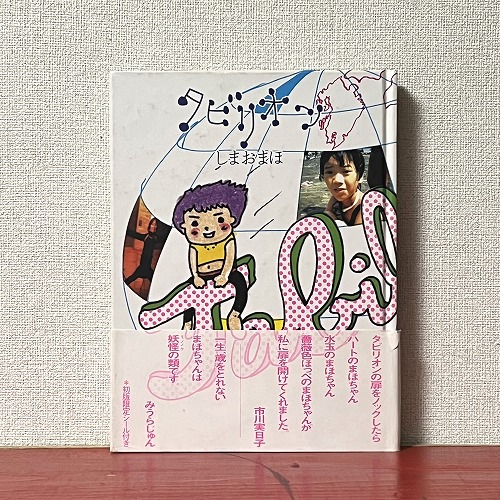 タビリオン
しまおまほ
タビリオンの扉をノックしたら
ハートのまほちゃん
水玉のまほちゃん
薔薇色ほっぺのまほちゃんが
私に扉を開けてくれました。
市川実日子
一生、歳をとれない
まほちゃんは
妖怪の類です
みうらじゅん
*初版限定シール付き